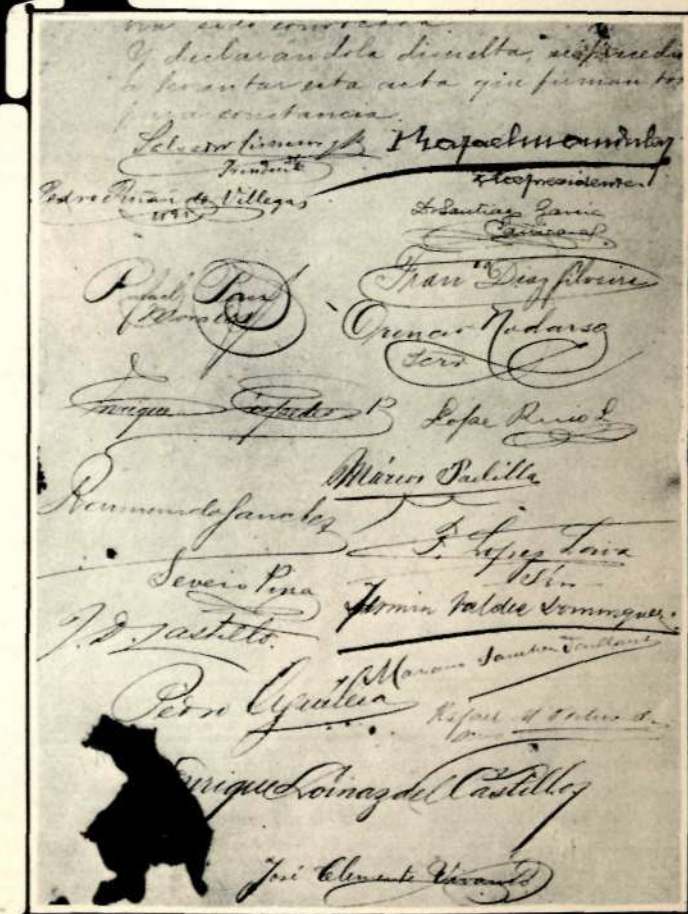 ha sido convocada.
Y declarándola disuelta, se procedió
a levantar esta acta que firman tos
para constancia.
Salvador Cisneros B
Presidente
Rafael Manduley
Vicepresidente
Pedro Piñán de Villegas
Dr Santiago García
Cañizares
Rafael Pérez
Morales
Franco Díaz Silveira
Orencio Nodarse
Serio
Enrique Céspedes
Lope Recio L
Marcos Padilla
Raimundo Sánchez
F. López Leiva
Severo Pina
Fermín Valdés Domínguez
J. D. Castillo.
Mariano Sánchez Vaillant
Pedro Aguilera
Rafael M Portuondo
Enrique Loinaz del Castillo
José Clemente Vivanco